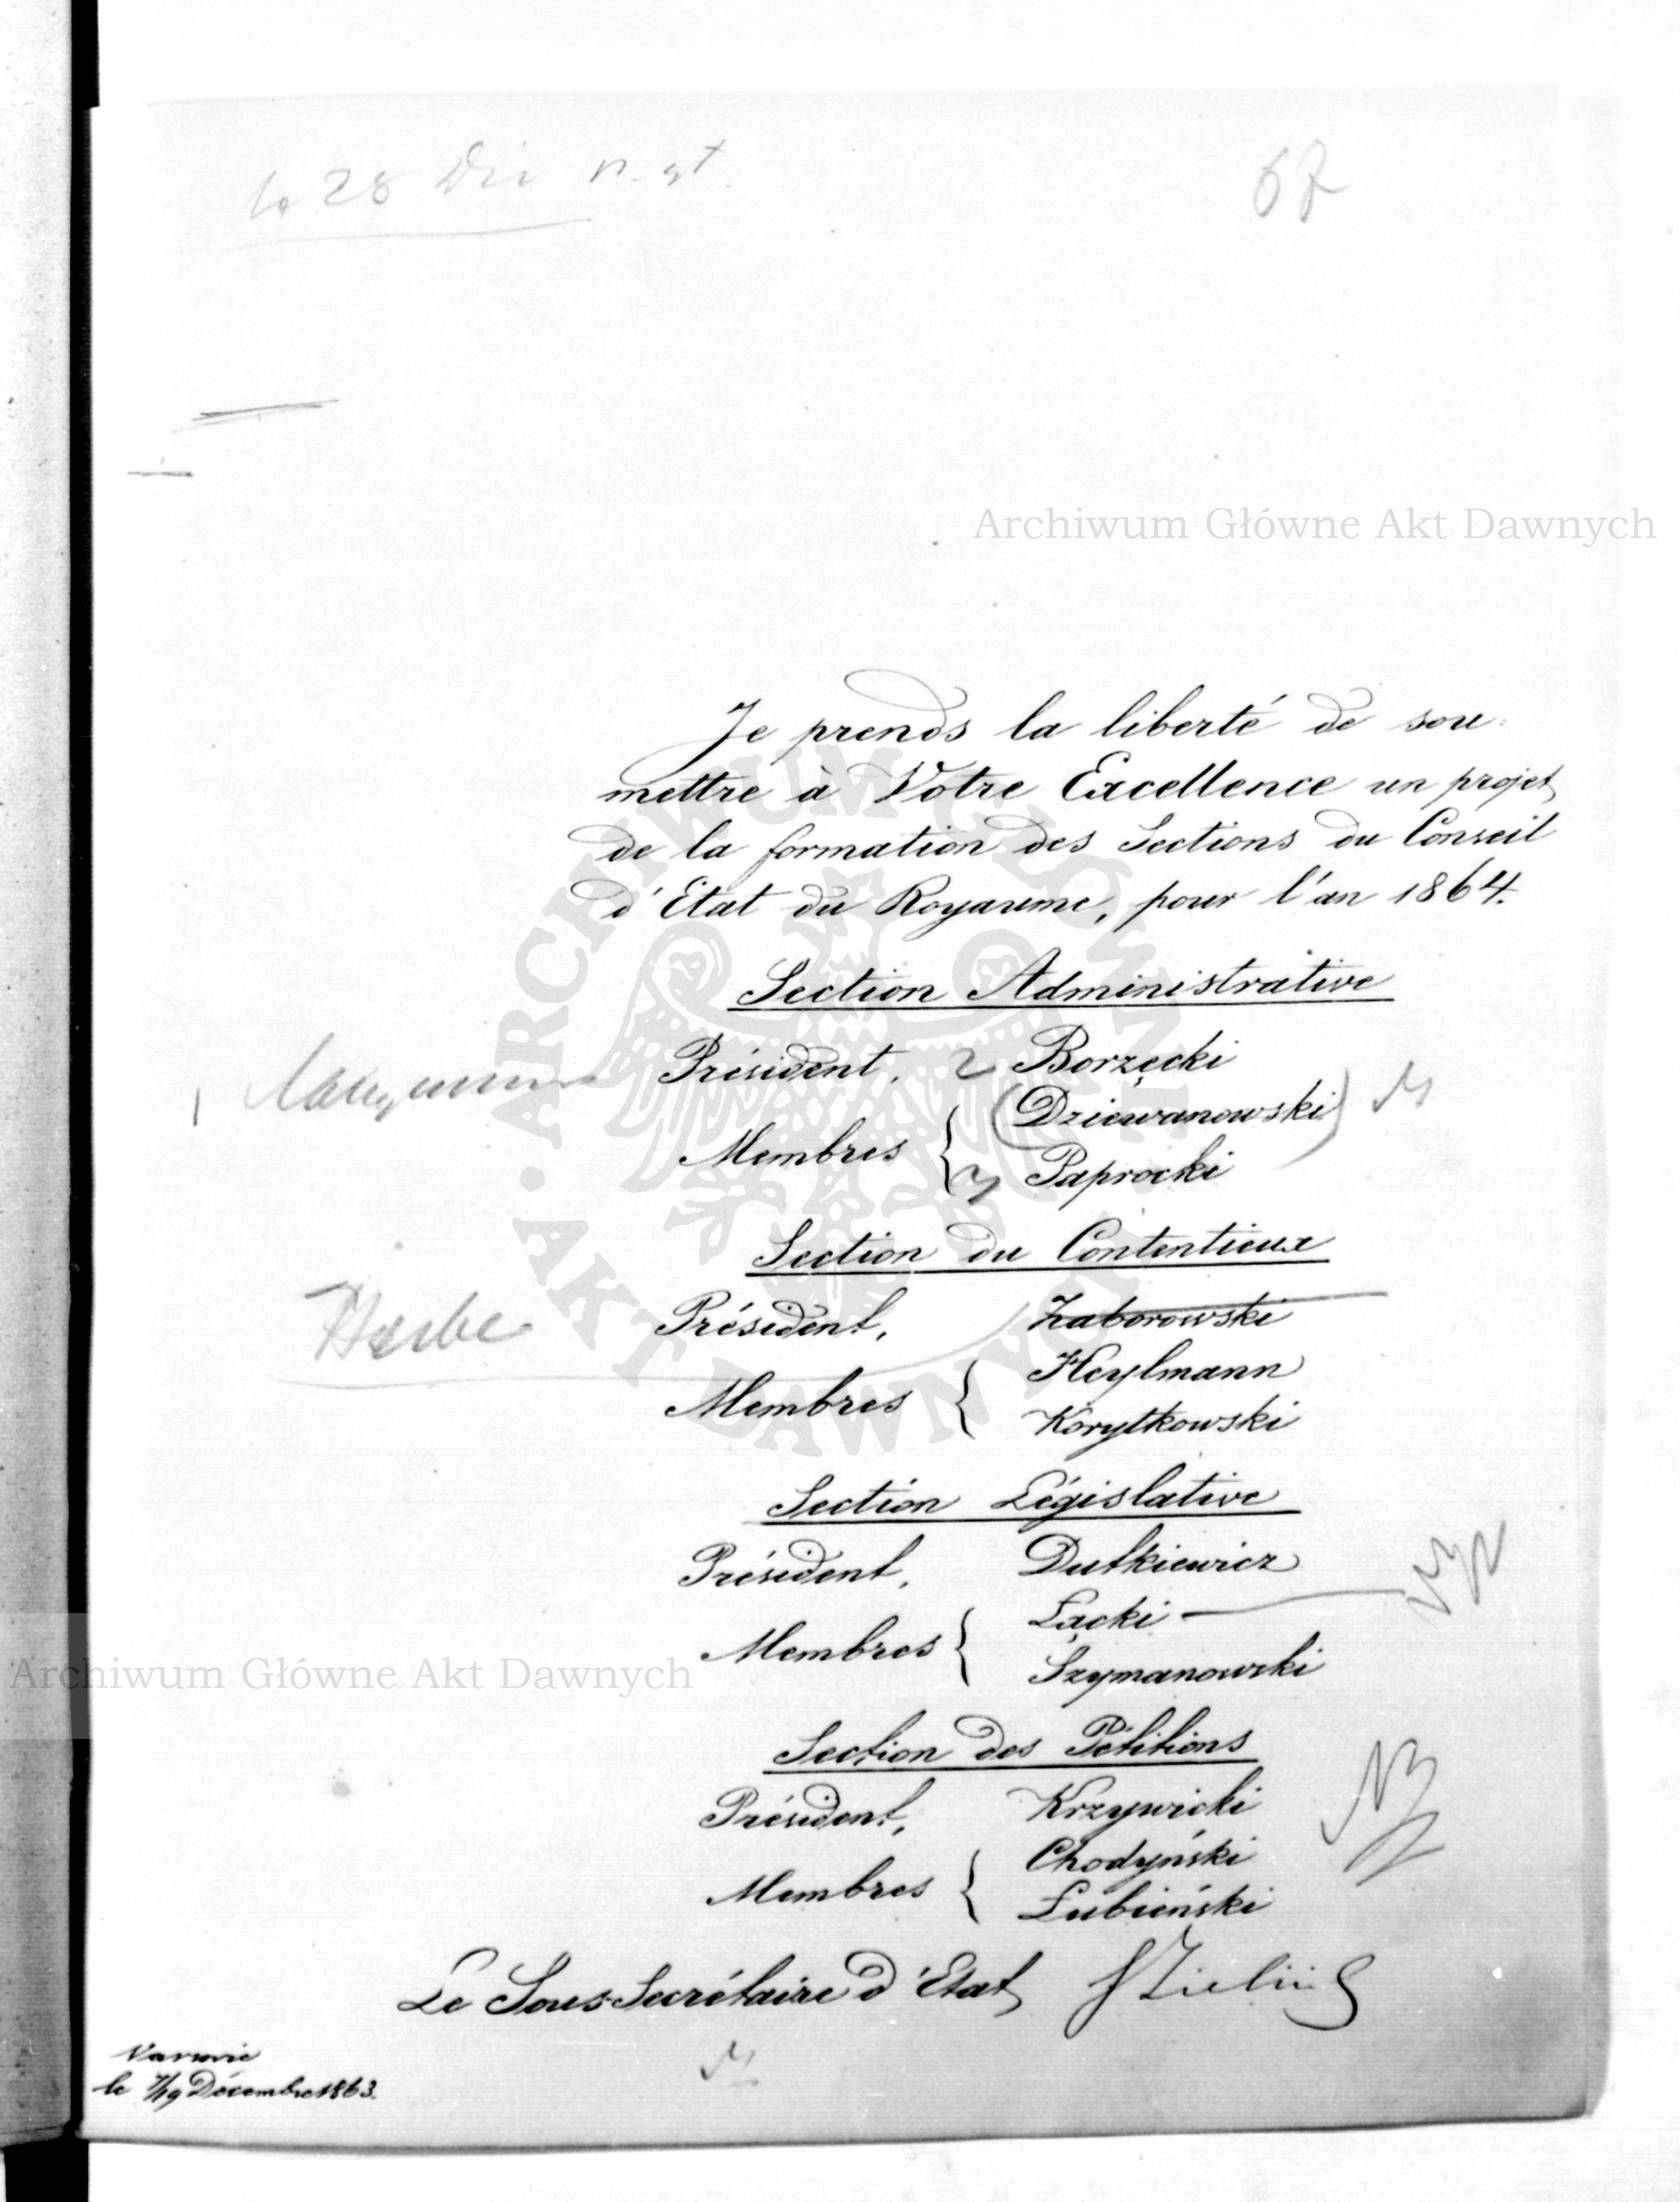 le 28 n. st.
67
Archiwum Główne Akt Dawnych
Je prends la liberté de sou-
mettre à Votre Excellence un projet
de la formation des Sections du Conseil
d'Etat du Royaume, pour l'an 1864.
Section Administrative
Président, 2 Borzęcki
Membres { (Dziewanowski)
3 Paprocki
Section du Contentieux
Président, Zaborowski
Membres { Heylmann
Korytkowski
Section Législative
Président, Dutkiewicz
Membres { Łącki
Szymanowski
Archiwum Główne Akt Dawnych
Section des Pétitions
Président, Krzywicki
Membres { Chodyński
Łubieński
Le Sous-Secrétaire d'Etat
Varsovie
le 7/19 Décembre 1863.
ARCHIWUM GŁÓWNE AKT DAWNYCH